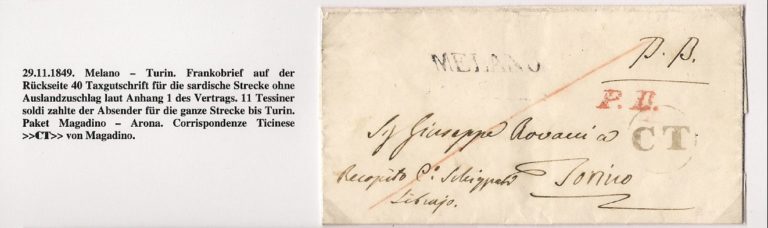 29.11.1849. Melano – Turin. Frankobrief auf der
Rückseite 40 Taxgutschrift für die sardische Strecke ohne
Auslandzuschlag laut Anhang 1 des Vertrags. 11 Tessiner
soldi zahlte der Absender für die ganze Strecke bis Turin.
Paket Magadino – Arona. Corrispondenze Ticinese
>>CT>> von Magadino.
MELANO
P. P.
P. P.
CT
Sig Giuseppe Rovani a
Torino
Recapito
Librajo.